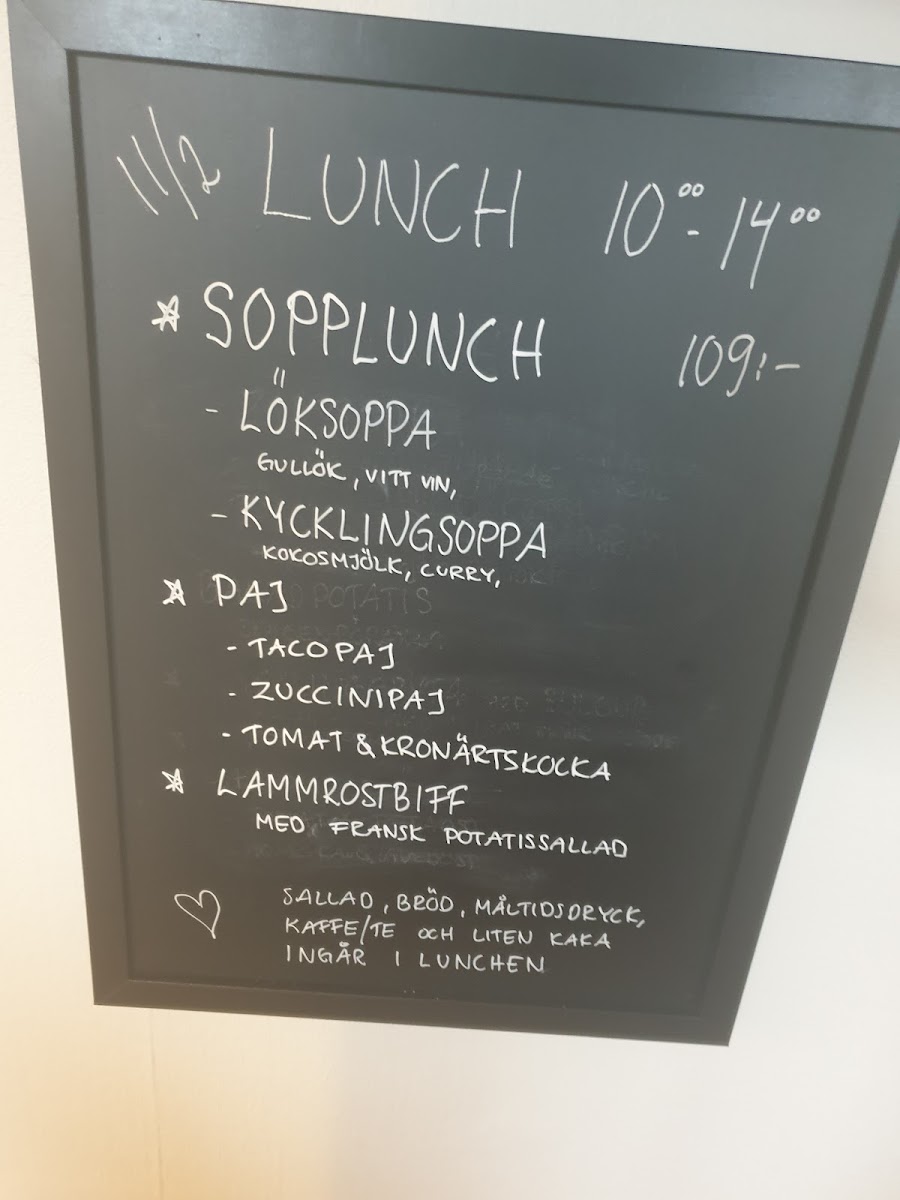 11/2 LUNCH 10⁰⁰-14⁰⁰
SOPPLUNCH 109:-
- LÖKSOPPA
GULLÖK, VITT VIN,
- KYCKLINGSOPPA
KOKOSMJÖLK, CURRY,
PAJ
- TACOPAJ
- ZUCCINIPAJ
- TOMAT & KRONÄRTSKOCKA
LAMMROSTBIFF
MED FRANSK POTATISSALLAD
SALLAD, BRÖD, MÅLTIDSDRYCK,
KAFFE/TE OCH LITEN KAKA
INGÅR I LUNCHEN